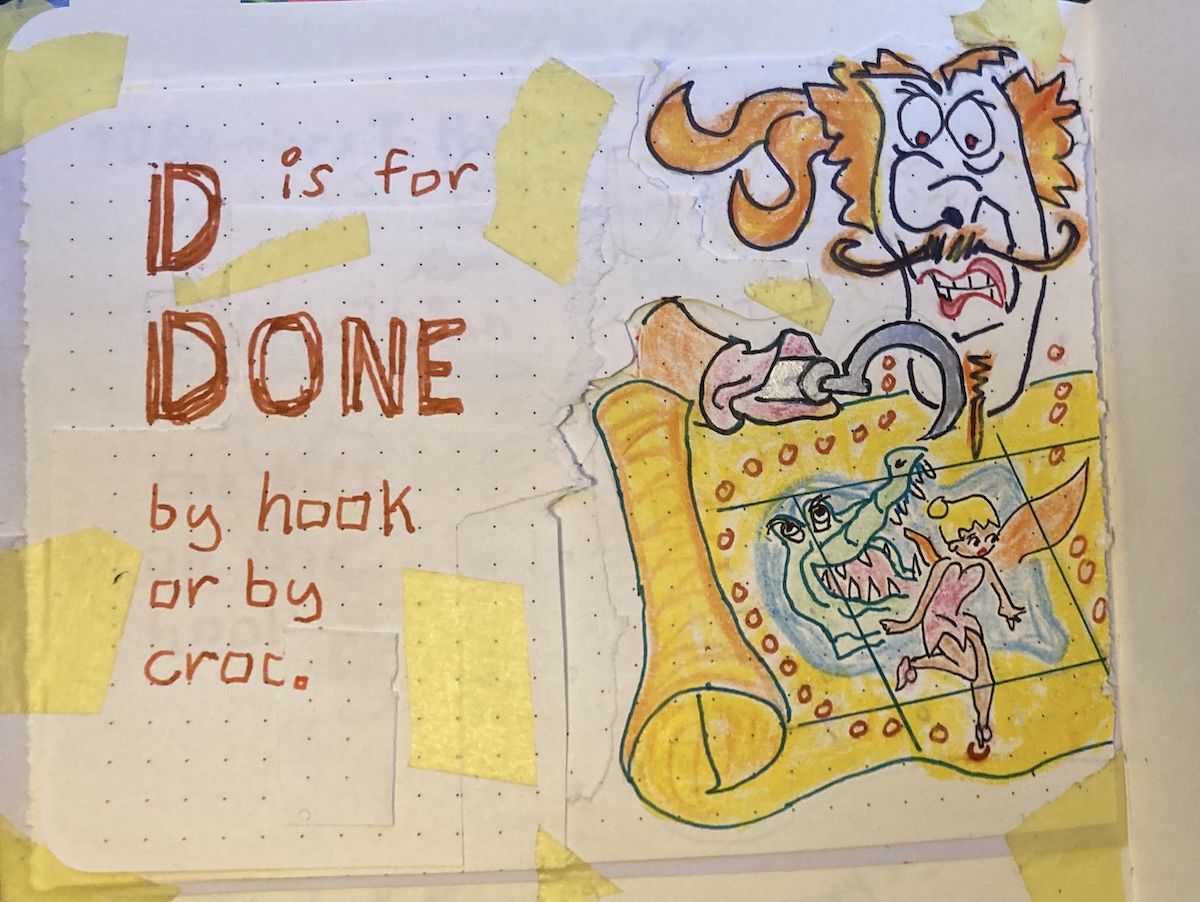 D is for
DONE
by hook
or by
croc.